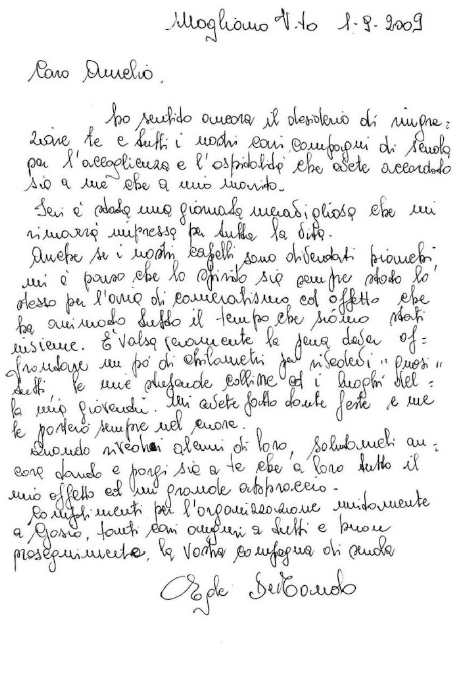 Mogliano V.to 1-9-2009
Caro Aurelio,
ho sentito ancora il desiderio di ringra=
ziare te e tutti i nostri cari compagni di scuola
per l'accoglienza e l'ospitalità che avete accordato
sia a me che a mio marito.
Ieri è stata una giornata meravigliosa che mi
rimarrà impressa per tutta la vita.
Anche se i nostri capelli sono diventati bianchi
mi è parso che lo spirito sia sempre stato lo
stesso per l'aria di cameratismo ed affetto che
ha animato tutto il tempo che siamo stati
insieme. È valsa veramente la pena dover af=
frontare un pò di chilometri per rivedervi "quasi"
tutti, le mie stupende colline ed i luoghi del=
la mia giovendù. Mi avete fatto tante feste e me
le porterò sempre nel cuore.
Quando rivedrai alcuni di loro, salutameli an=
cora tanto e porgi sia a te che a loro tutto il
mio affetto ed un grande abbraccio.
Complimenti per l'organizzazione unitamente
a, tanti cari auguri a tutti e buon
proseguimento, la vostra compagna di scuola